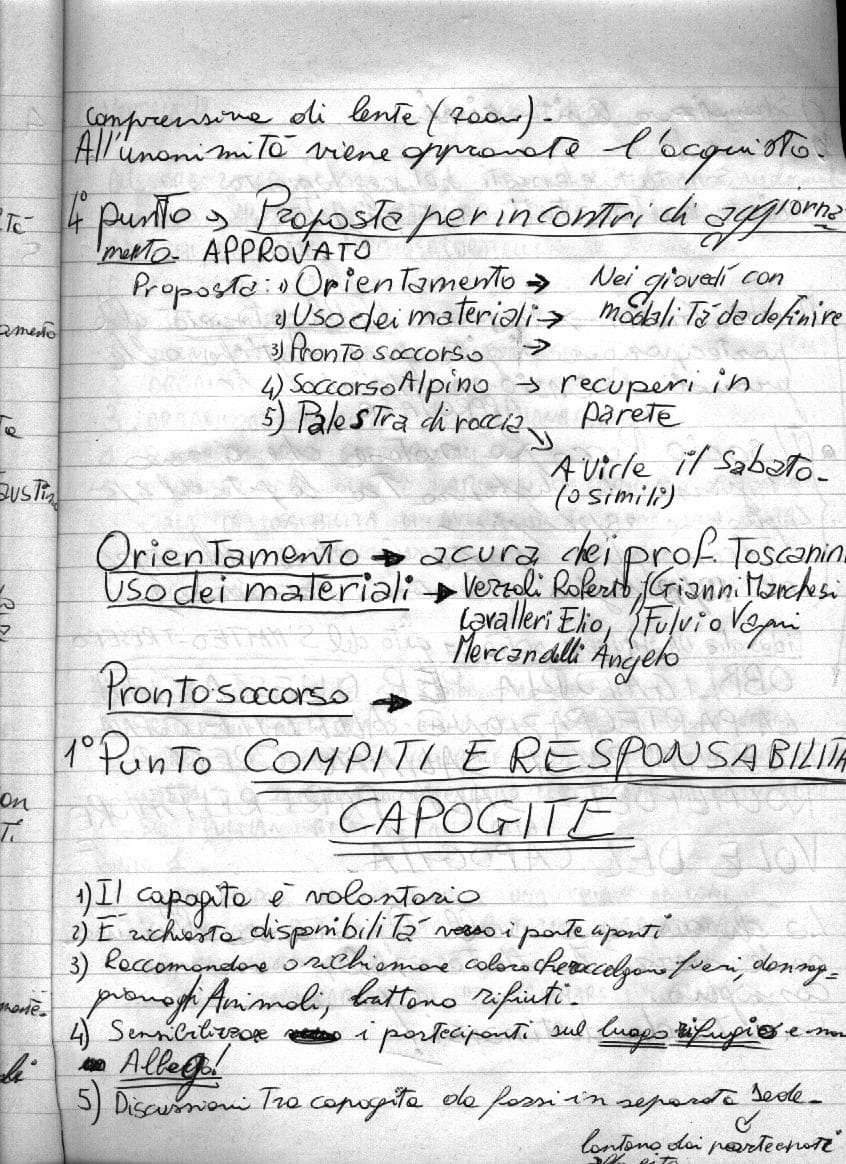 comprensiva di lente (zoom).
All'unanimità viene approvato l'acquisto.
4° punto → Proposta per incontri di aggiorna
mento. APPROVATO
Proposta: 1) Orientamento → Nei giovedí con
2) Uso dei materiali → modalità da definire
3) Pronto soccorso →
4) Soccorso Alpino → recuperi in
5) Palestra di roccia parete
A Virle il Sabato.
(o simili)
Orientamento → a cura dei prof. Toscanin
Uso dei materiali → Vezzoli Roberto, Gianni Marchesi
Cavalleri Elio, Fulvio Vagni
Mercandelli Angelo
Pronto soccorso →
1° Punto COMPITI E RESPONSABILITA
CAPOGITE
1) Il capogita é volontario
2) É richiesta disponibilità verso i partecipanti
3) Raccomandare o richiamare coloro che raccolgono fiori, danneg-
giano gli Animali, buttano rifiuti.
4) Sensibilizzare i partecipanti sul luogo rifugio e non
Albergo!
5) Discussioni Tra capogita da farsi in separata sede.
lontano dai partecipanti